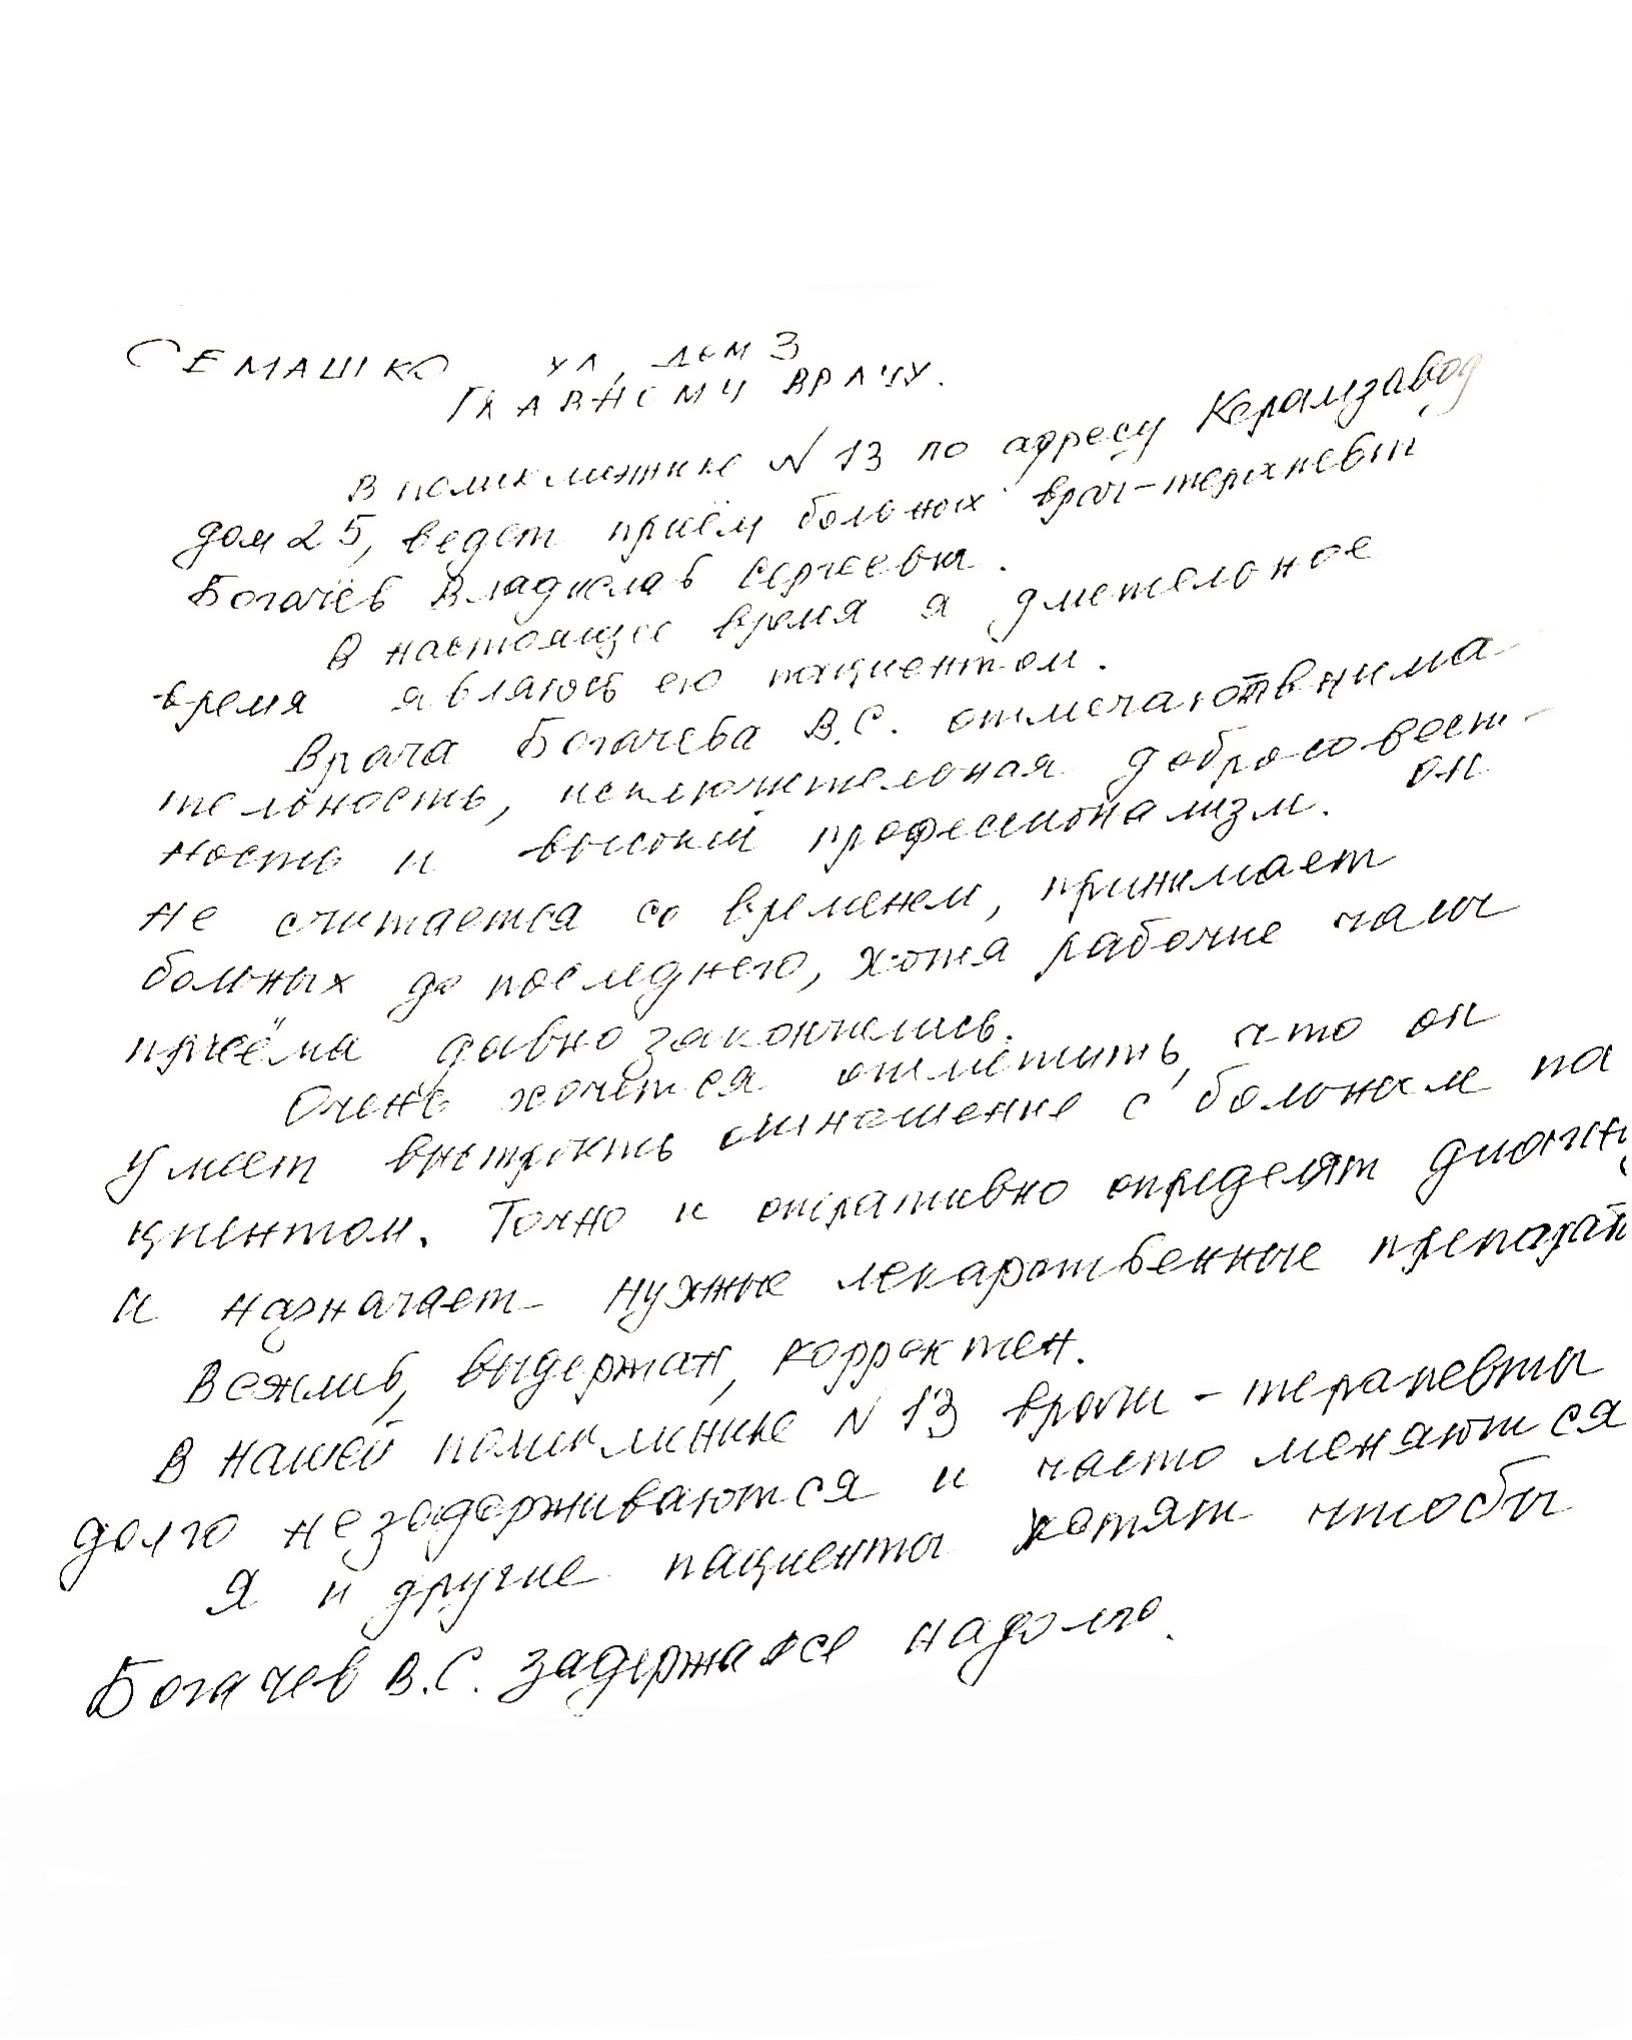 СЕМАШКО ул, дом 3
ГЛАВНОМУ ВРАЧУ.
В поликлинике N 13 по адресу Керамзавод
дом 25, ведет приём больных врач-терапевт
Богачёв Владислав Сергеевич.
В настоящее время я длительное
время являюсь его пациентом.
Врача Богачева В.С. отмечают внима
тельность, исключительная добросовест-
ность и высокий профессионализм. он
не считается со временем, принимает
больных до последнего, хотя рабочие часы
приёма давно закончились.
Очень хочется отметить, что он
умеет выстроить отношение с больным па
циентом. Точно и оперативно определят диагну
и назначает нужные лекарственные препарат
Вежлив, выдержан, корректен.
В нашей поликлинике N 13 врачи - терапевты
долго незадерживаются и часто меняются
Я и другие пациенты хотят чтобы
Богачев В.С. задержался надолго.